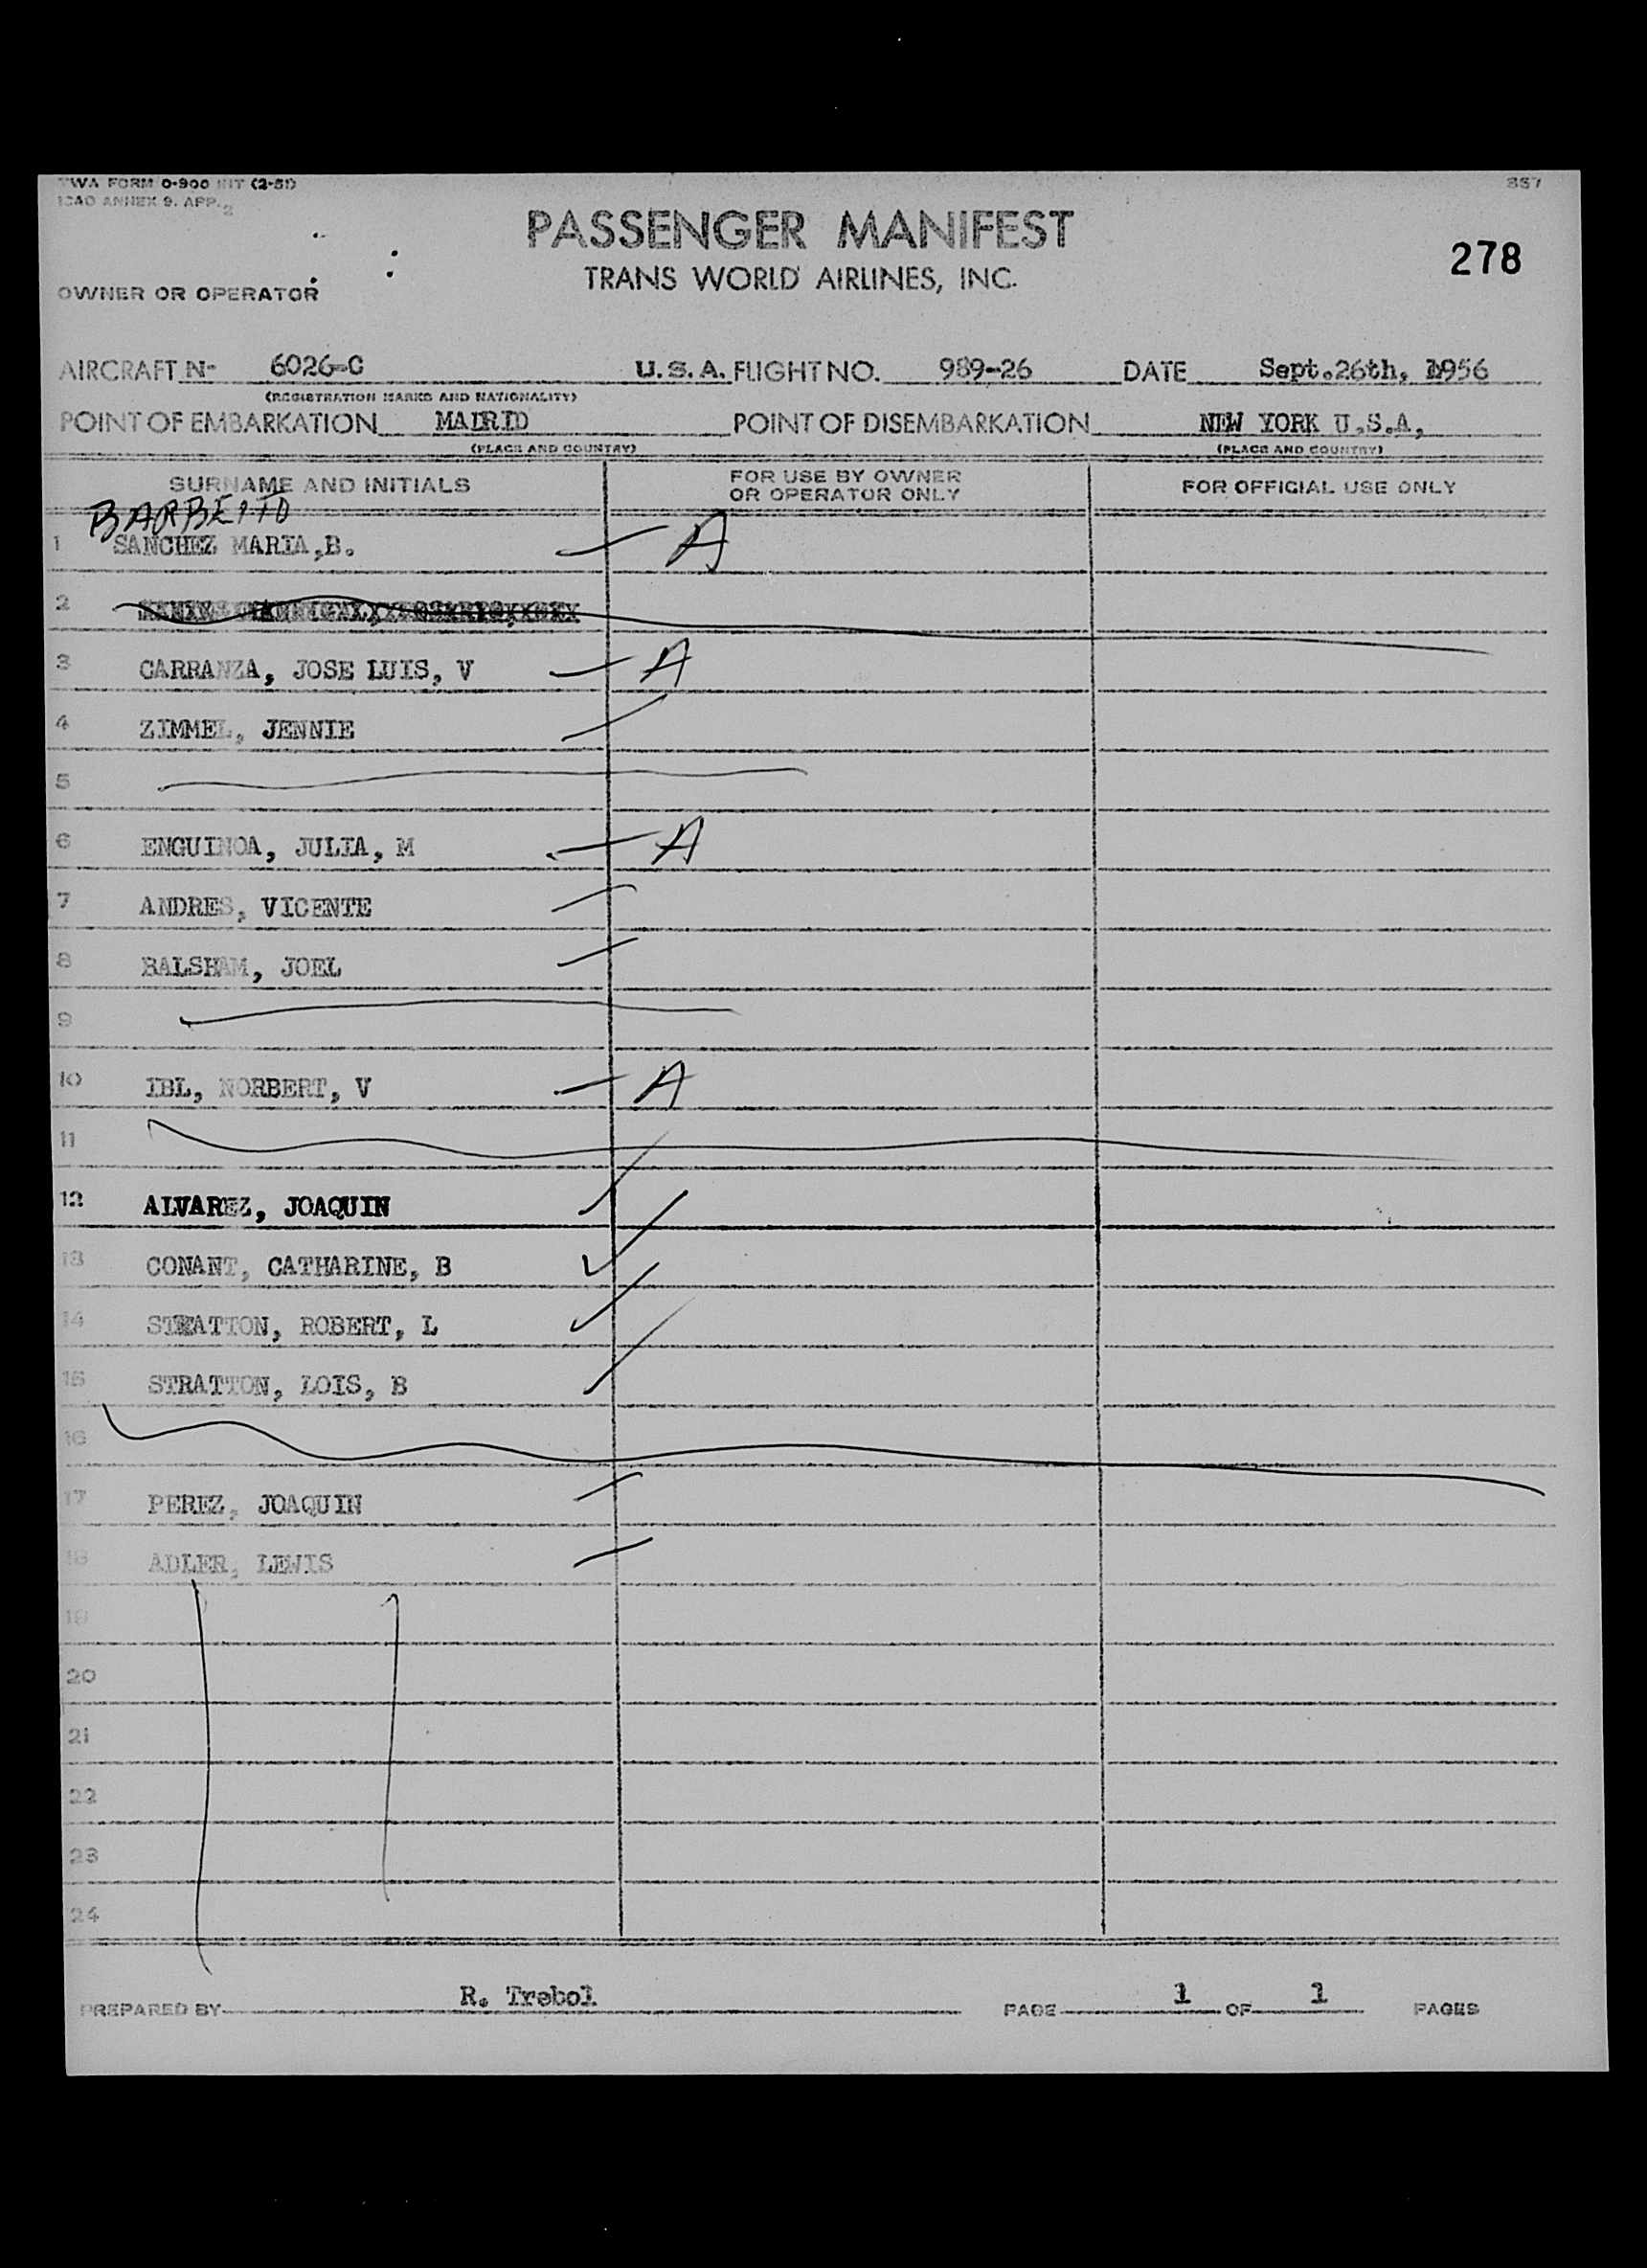 TWA FORM 0-900 INT (2-51)
ICAO ANNEX 9. APP. 2
PASSENGER MANIFEST
278
TRANS WORLD AIRLINES, INC.
OWNER OR OPERATOR
AIRCRAFT N- 6026-C U.S.A. FLIGHT NO. 989-26 DATE Sept.26th, 1956
(REGISTRATION MARKS AND NATIONALITY)
POINT OF EMBARKATION MADRID POINT OF DISEMBARKATION NEW YORK U.S.A,
(PLACE AND COUNTRY) (PLACE AND COUNTRY)
SURNAME AND INITIALS FOR USE BY OWNER OR OPERATOR ONLY FOR OFFICIAL USE ONLY
BARBEITO
1 SANCHEZ MARIA,B. A
2
3 CARRANZA, JOSE LUIS, V A
4 ZIMMEL, JENNIE
5
6 ENGUINOA, JULIA, M A
7 ANDRES, VICENTE
8 BALSHAM, JOEL
9
10 IBL, NORBERT, V A
11
12 ALVAREZ, JOAQUIN
13 CONANT, CATHARINE, B
14 STRATTON, ROBERT, L
15 STRATTON, LOIS, B
16
17 PEREZ, JOAQUIN
18 ADLER, LEWIS
19
20
21
22
23
24
PREPARED BY R. Trebol PAGE 1 OF 1 PAGES